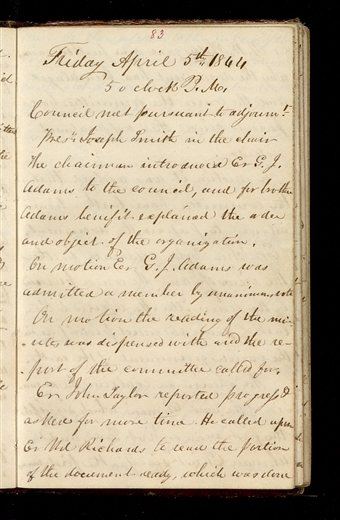 83
Friday April 5th 1844
5 o clock P. M.
Council met pursuant to adjournt.
Prest. Joseph Smith in the chair
The chairman introduced Er G. J.
Adams to the council, and for brother
Adams benifit explained the order
and object of the organization.
On motion Er G. J. Adams was
admitted a member by unanimous vote
On motion the reading of the mi-
nutes was dispensed with and the re-
port of the committee called for.
Er John Taylor reported progress &
asked for more time. He called upon
Er Wd Richards to read the portion
of the document ready, which was done